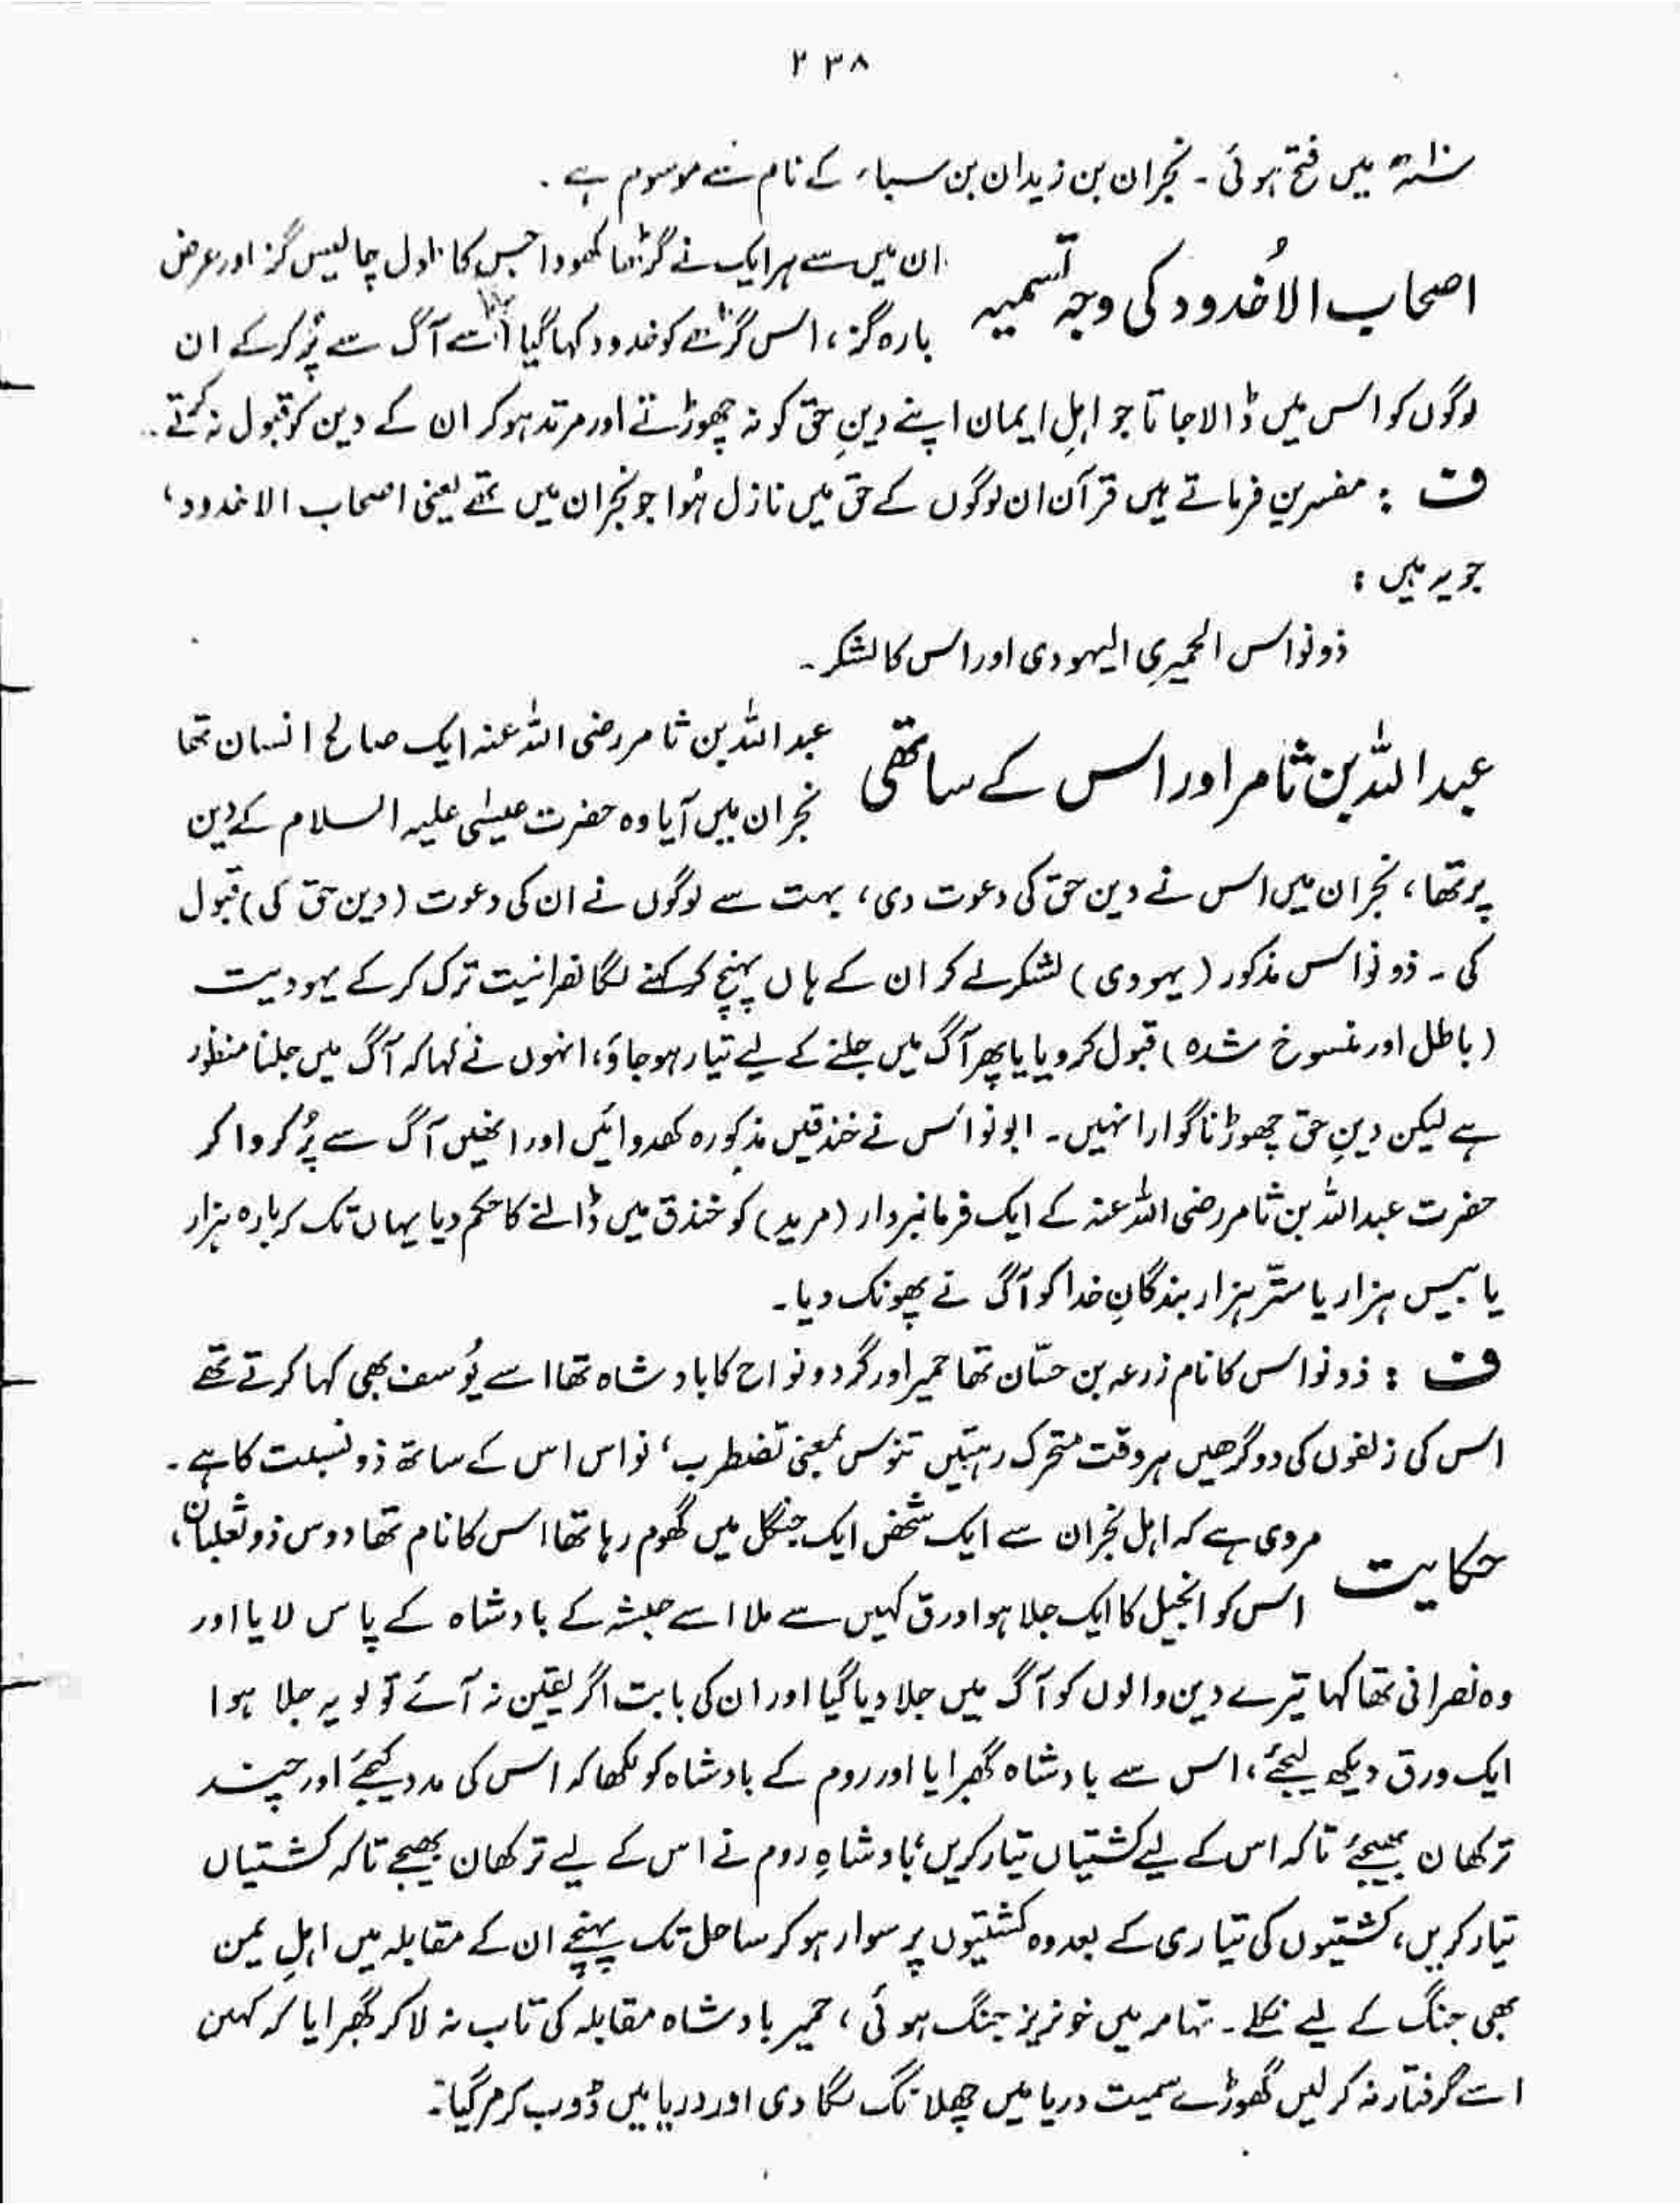 ۲۳۸
سنہ ۱۰ھ میں فتح ہوئی ۔ نجران بن زیدان بن سباء کے نام سے موسوم ہے ۔
اصحاب الاُخدود کی وجہ تسمیہ
ان میں سے ہر ایک نے گڑھا کھودا جس کا طول چالیس گز اور عرض
بارہ گز ، اس گڑھے کو خدود کہا گیا اسے آگ سے پُر کرکے ان
لوگوں کو اس میں ڈالا جاتا جو اہلِ ایمان اپنے دینِ حق کو نہ چھوڑتے اور مرتد ہو کر ان کے دین کو قبول نہ کرتے ۔
ف : مفسرین فرماتے ہیں قرآن ان لوگوں کے حق میں نازل ہُوا جو نجران میں تھے یعنی اصحاب الاخدود ،
جو یہ ہیں :
ذو نواس الحمیری الیہودی اور اس کا لشکر ۔
عبد اللہ بن ثامر اور اس کے ساتھی
عبد اللہ بن ثامر رضی اللہ عنہ ایک صالح انسان تھا
نجران میں آیا وہ حضرت عیسٰی علیہ السلام کے دین
پر تھا ، نجران میں اس نے دین حق کی دعوت دی ، بہت سے لوگوں نے ان کی دعوت (دین حق کی) قبول
کی ۔ ذو نواس مذکور (یہودی) لشکر لے کر ان کے ہاں پہنچ کر کہنے لگا نصرانیت ترک کر کے یہودیت
(باطل اور منسوخ شدہ) قبول کرو یا یا پھر آگ میں جلنے کے لیے تیار ہو جاؤ ، انہوں نے کہا کہ آگ میں جلنا منظور
ہے لیکن دینِ حق چھوڑنا گوارا نہیں ۔ ابو نواس نے خندقیں مذکورہ کھدوائیں اور انھیں آگ سے پُر کروا کر
حضرت عبد اللہ بن ثامر رضی اللہ عنہ کے ایک فرمانبردار (مرید) کو خندق میں ڈالنے کا حکم دیا یہاں تک کہ بارہ ہزار
یا بیس ہزار یا ستّر ہزار بندگانِ خدا کو آگ نے پھونک دیا ۔
ف : ذو نواس کا نام زرعہ بن حسّان تھا حمیر اور گرد و نواح کا بادشاہ تھا اسے یُوسف بھی کہا کرتے تھے
اس کی زلفوں کی دو گرھیں ہر وقت متحرک رہتیں تنوس بمعنی تضطرب ، نواس اس کے ساتھ ذو نسبت کا ہے ۔
حکایت
مروی ہے کہ اہل نجران سے ایک شخص ایک جنگل میں گھوم رہا تھا اس کا نام تھا دوس ذو ثعلبان ،
اس کو انجیل کا ایک جلا ہوا ورق کہیں سے ملا اسے حبشہ کے بادشاہ کے پاس لایا اور
وہ نصرانی تھا کہا تیرے دین والوں کو آگ میں جلا دیا گیا اور ان کی بابت اگر یقین نہ آئے تو لو یہ جلا ہوا
ایک ورق دیکھ لیجئے ، اس سے بادشاہ گھبرایا اور روم کے بادشاہ کو لکھا کہ اس کی مدد کیجئے اور چند
ترکھان بھیجئے تاکہ اس کے لیے کشتیاں تیار کریں ، بادشاہِ روم نے اس کے لیے ترکھان بھیجے تاکہ کشتیاں
تیار کریں ، کشتیوں کی تیاری کے بعد وہ کشتیوں پر سوار ہو کر ساحل تک پہنچے ان کے مقابلہ میں اہلِ یمن
بھی جنگ کے لیے نکلے ۔ تہامہ میں خونریز جنگ ہوئی ، حمیر بادشاہ مقابلہ کی تاب نہ لا کر گھبرایا کہ کہیں
اسے گرفتار نہ کر لیں گھوڑے سمیت دریا میں چھلانگ لگا دی اور دریا میں ڈوب کر مر گیا ۔